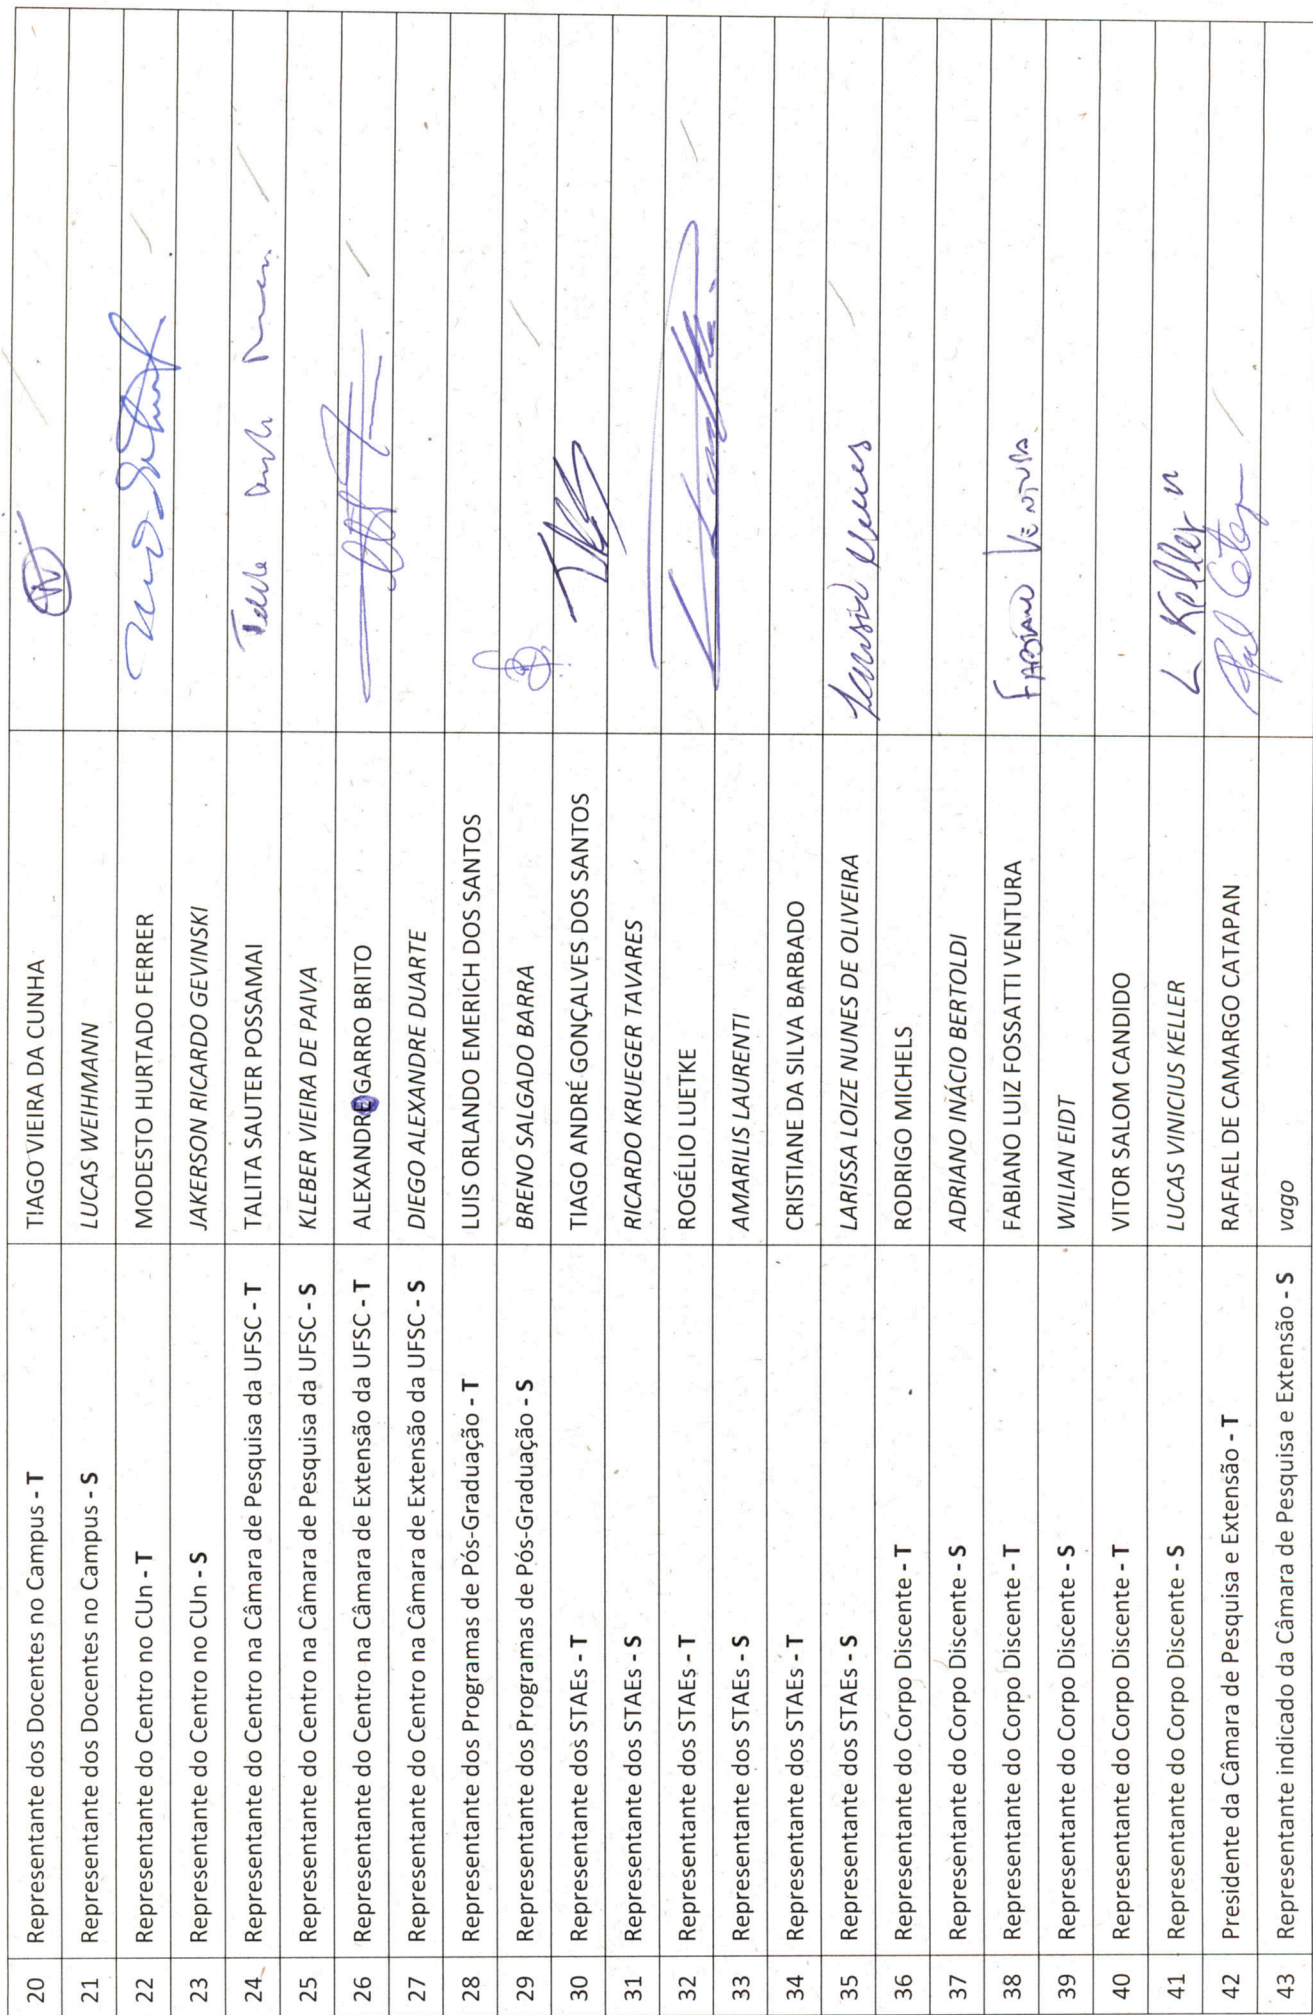 20 Representante dos Docentes no Campus - T TIAGO VIEIRA DA CUNHA
21 Representante dos Docentes no Campus - S LUCAS WEIHMANN
22 Representante do Centro no CUn - T MODESTO HURTADO FERRER
23 Representante do Centro no CUn - S JAKERSON RICARDO GEVINSKI
24 Representante do Centro na Câmara de Pesquisa da UFSC - T TALITA SAUTER POSSAMAI
25 Representante do Centro na Câmara de Pesquisa da UFSC - S KLEBER VIEIRA DE PAIVA
26 Representante do Centro na Câmara de Extensão da UFSC - T ALEXANDRE GARRO BRITO
27 Representante do Centro na Câmara de Extensão da UFSC - S DIEGO ALEXANDRE DUARTE
28 Representante dos Programas de Pós-Graduação - T LUIS ORLANDO EMERICH DOS SANTOS
29 Representante dos Programas de Pós-Graduação - S BRENO SALGADO BARRA
30 Representante dos STAEs - T TIAGO ANDRÉ GONÇALVES DOS SANTOS
31 Representante dos STAEs - S RICARDO KRUEGER TAVARES
32 Representante dos STAEs - T ROGÉLIO LUETKE
33 Representante dos STAEs - S AMARILIS LAURENTI
34 Representante dos STAEs - T CRISTIANE DA SILVA BARBADO
35 Representante dos STAEs - S LARISSA LOIZE NUNES DE OLIVEIRA
36 Representante do Corpo Discente - T RODRIGO MICHELS
37 Representante do Corpo Discente - S ADRIANO INÁCIO BERTOLDI
38 Representante do Corpo Discente - T FABIANO LUIZ FOSSATTI VENTURA FABIANO VENTURA
39 Representante do Corpo Discente - S WILIAN EIDT
40 Representante do Corpo Discente - T VITOR SALOM CANDIDO
41 Representante do Corpo Discente - S LUCAS VINICIUS KELLER L Keller
42 Presidente da Câmara de Pesquisa e Extensão - T RAFAEL DE CAMARGO CATAPAN
43 Representante indicado da Câmara de Pesquisa e Extensão - S vago